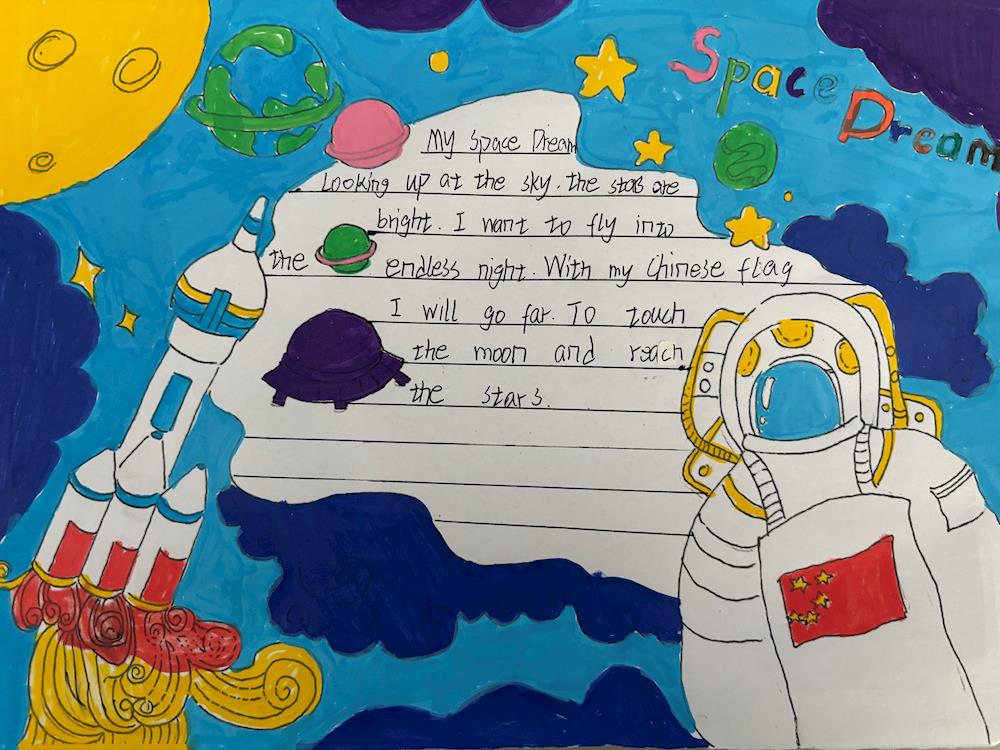 Space Dream
My Space Dream
Looking up at the sky. the stars are
bright. I want to fly into
the endless night. With my Chinese flag
I will go far. To touch
the moon and reach
the stars.